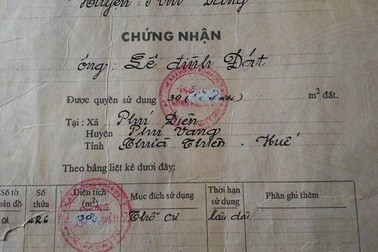 Huyện
CHỨNG NHẬN
ông: Lê đình Dát
Được quyền sử dụng 30 m² đất.
Tại : Xã Phú Diên
Huyện Phú Vang
Tỉnh Thừa Thiên - Huế
Theo bảng liệt kê dưới đây:
Số tờ bản đồ Số thửa Diện tích (m²) Mục đích sử dụng Thời hạn sử dụng Phần ghi thêm
01 426 30 Thổ cư lâu dài